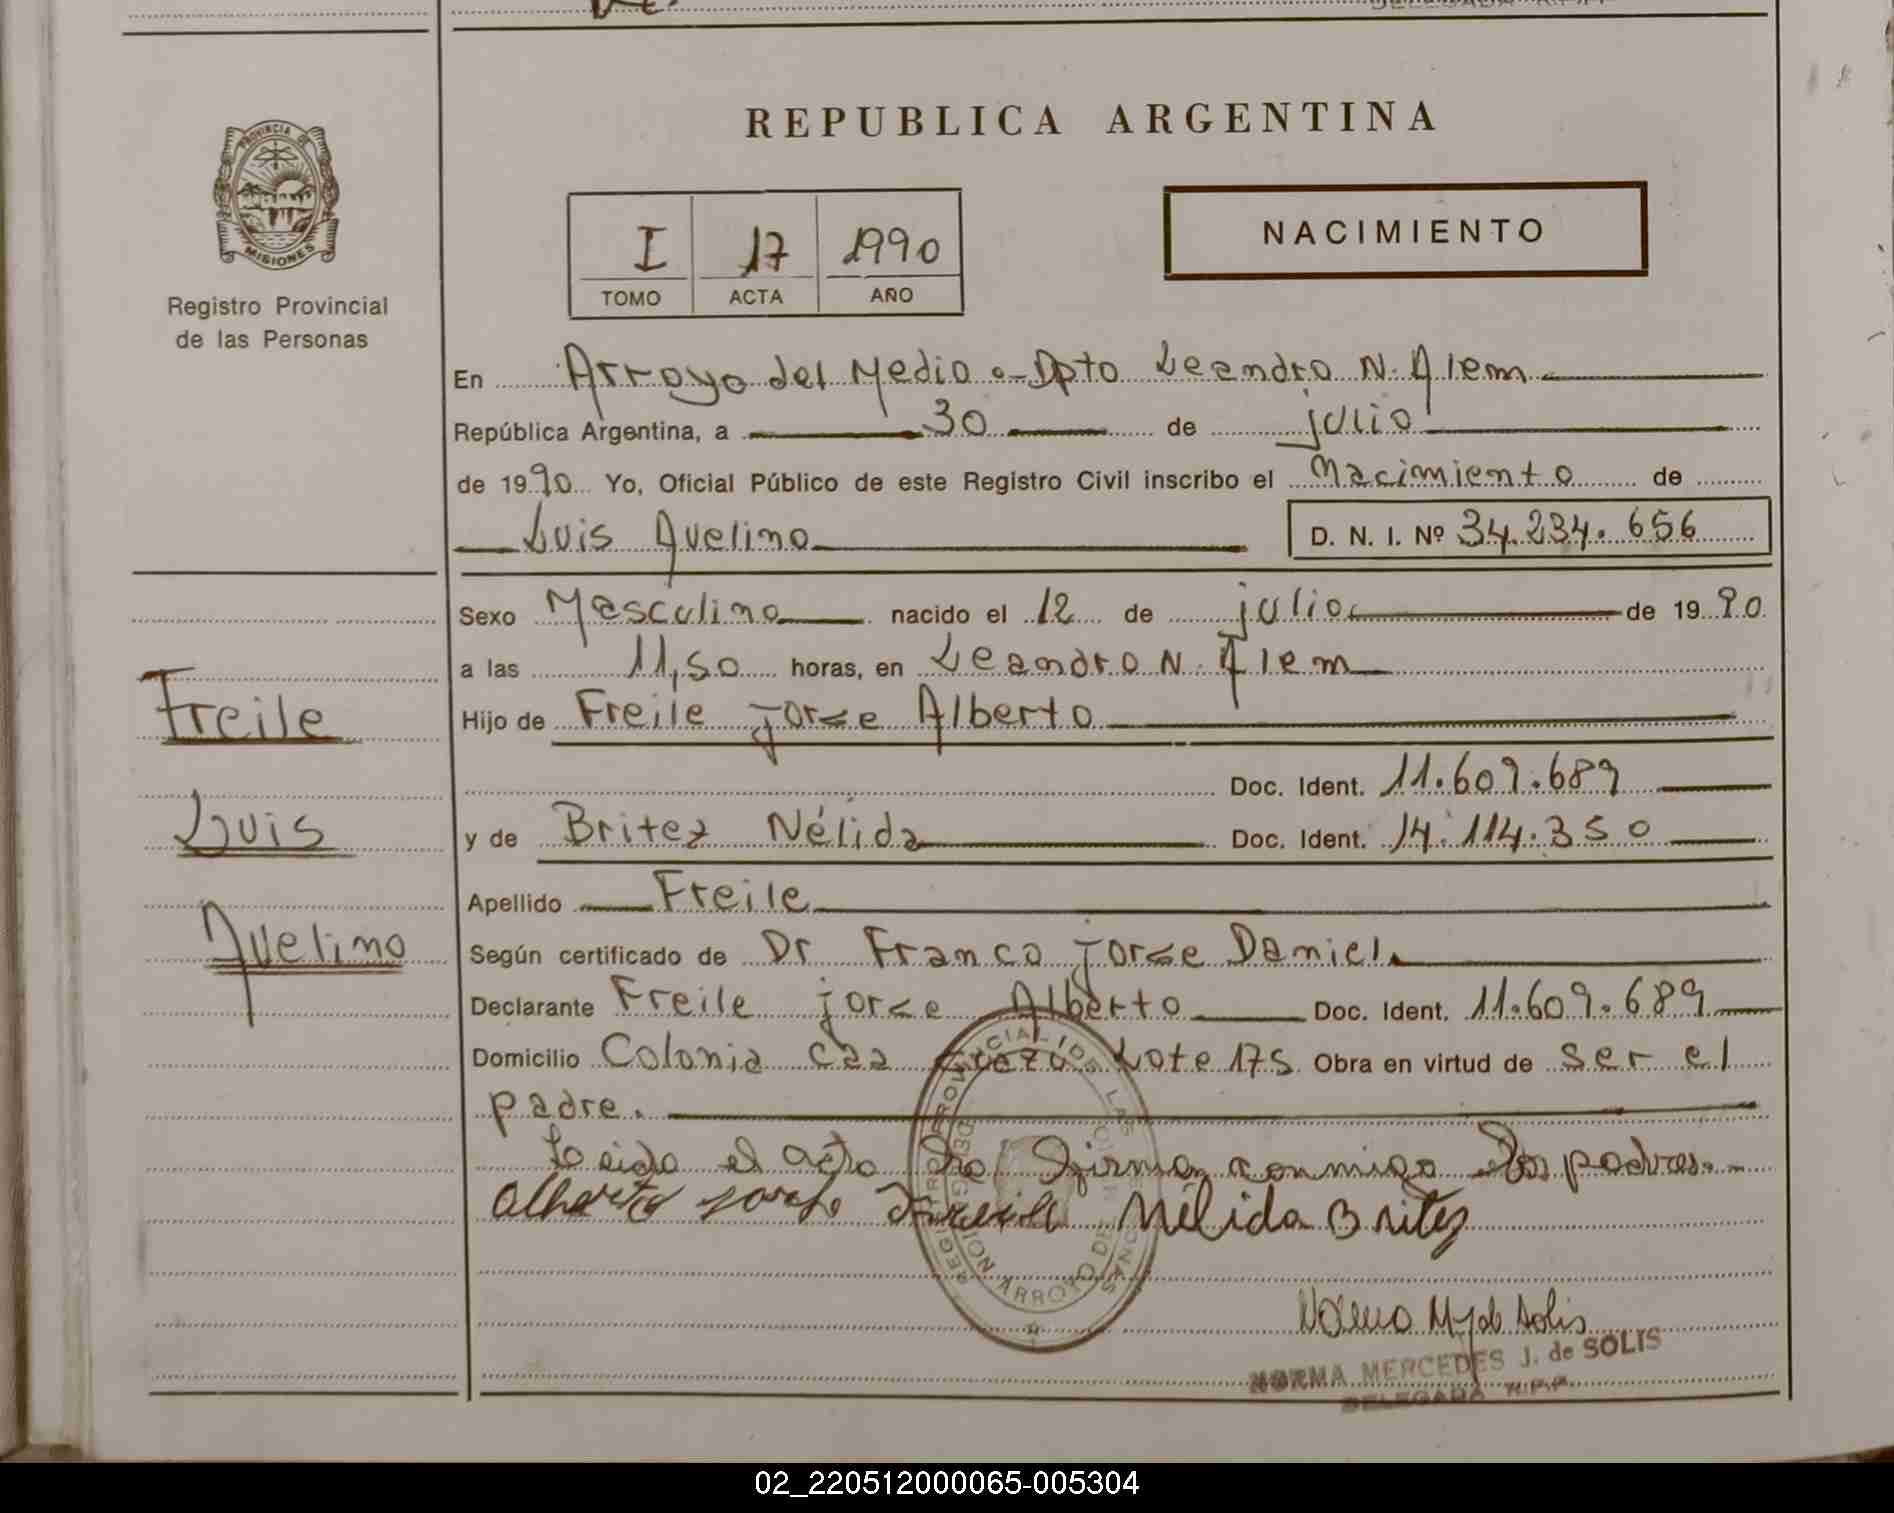 REPUBLICA ARGENTINA
PROVINCIA DE
MISIONES
Registro Provincial
de las Personas
I 17 1990
TOMO ACTA AÑO
NACIMIENTO
En Arroyo del Medio - Dpto Leandro N. Alem
República Argentina, a 30 de julio
de 1990 Yo, Oficial Público de este Registro Civil inscribo el Nacimiento de
Luis Avelino D. N. I. Nº 34.234.656
Sexo Masculino nacido el 12 de julio de 1990
a las 11,50 horas, en Leandro N. Alem
Hijo de Freile Jorge Alberto
Doc. Ident. 11.609.689
y de Britez Nélida Doc. Ident. 14.114.350
Apellido Freile
Según certificado de Dr Franco Jorge Daniel
Declarante Freile Jorge Alberto Doc. Ident. 11.609.689
Domicilio Colonia Caa Lote 175 Obra en virtud de ser el
padre.
Leida el acta la firman conmigo los padres.-
Alberto Jorge Freile Nélida Britez
NORMA MERCEDES J. de SOLIS
DELEGADA R.P.P.
Freile
Luis
Avelino
REGISTRO PROVINCIAL DE LAS
DELEGACION ARROYO DEL
02_220512000065-005304